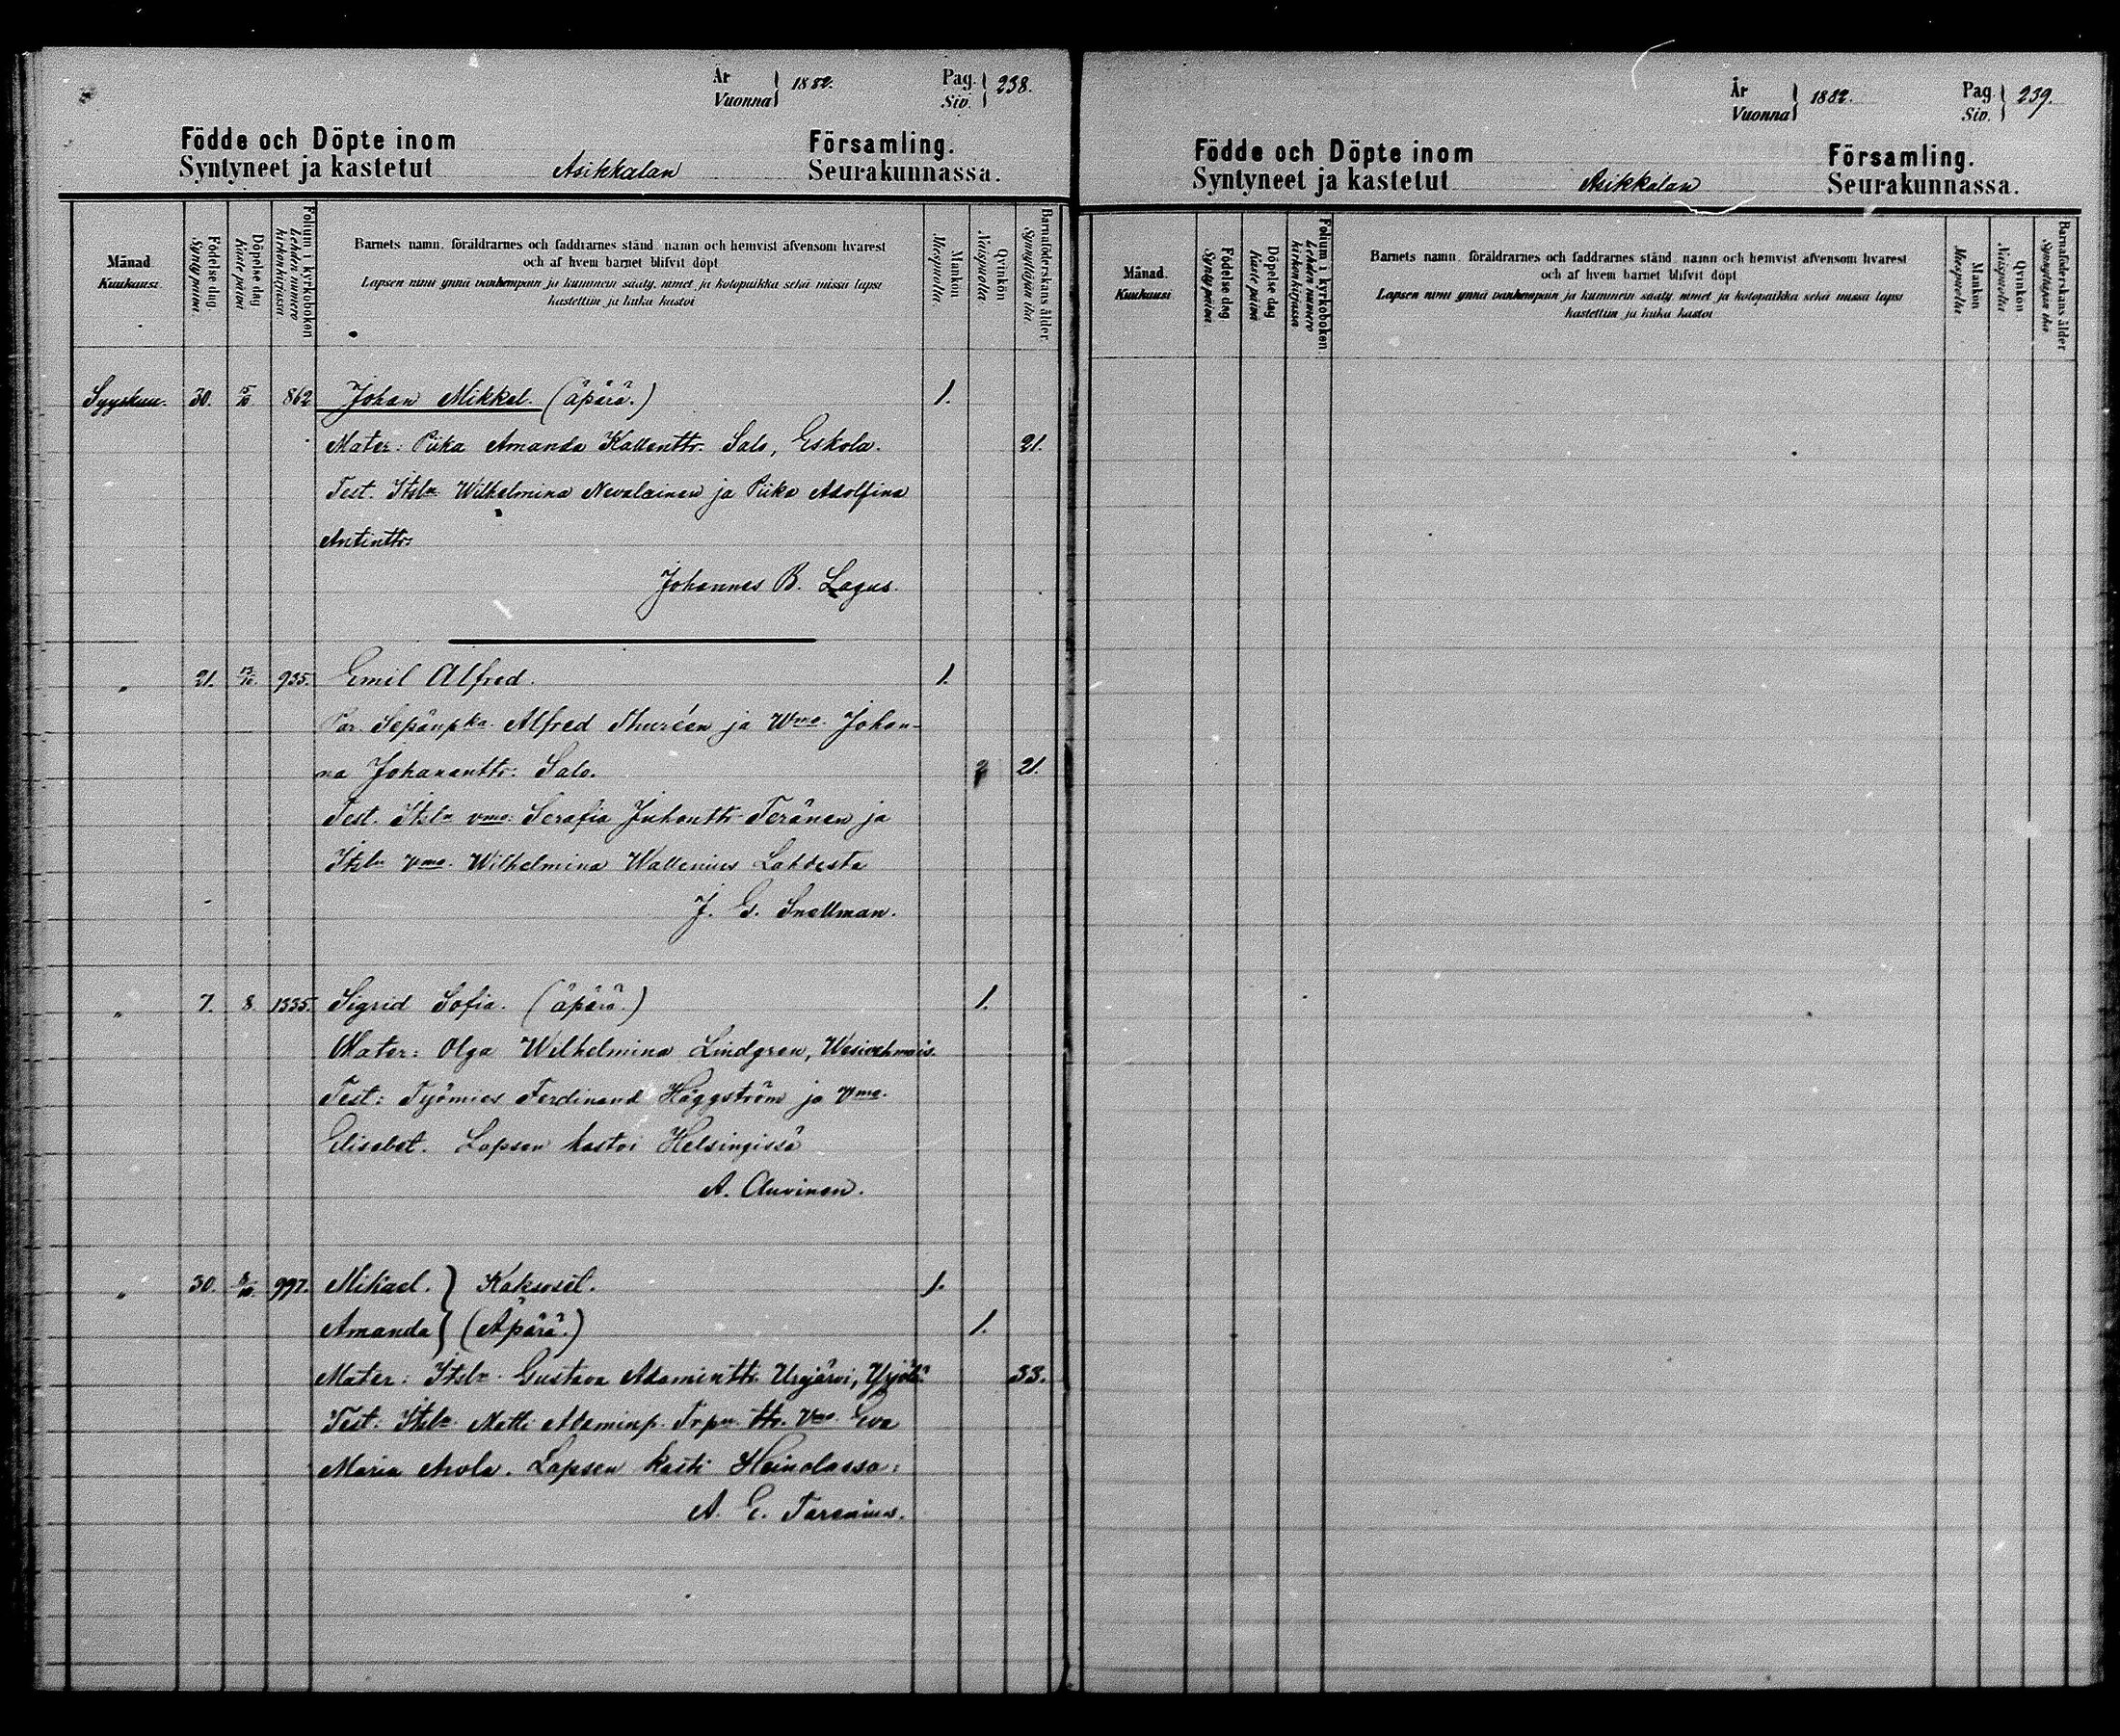 År
Vuonna } 1882.
Pag.
Siv. } 238.
Födde och Döpte inom Församling.
Syntyneet ja kastetut Asikkalan Seurakunnassa.
Månad.
Kuukausi.
Födelse dag.
Syntypäivä.
Döpelse dag
Kaste päivä
Folium i kyrkoboken
Lehden numero
kirkonkirjassa
Barnets namn, föräldrarnes och faddrarnes stånd, namn och hemvist äfvensom hvarest
och af hvem barnet blifvit döpt
Lapsen nimi ynnä vanhempain ja kummein sääty, nimet ja kotopaikka sekä missä lapsi
kastettiin ja kuka kastoi
Mankön
Miespuolta
Qvinkön
Naispuolta
Barnaföderskans ålder.
Synnyttäjän ikä.
Syyskuu. 30. 15/10 862 Johan Mikkel. (äpärä.) 1.
Mater: Piika Amanda Kallenttr. Salo, Eskola. 21.
Test. Itsln Wilhelmina Nevalainen ja Piika Adolfina
Antinttr:
Johannes B. Lagus.
" 21. /10. 935. Emil Alfred. 1.
Par. Sepänpka. Alfred Thuréen ja Wmo. Johan-
na Johananttr: Salo. 21.
Test. Itsln vmo: Serafia Juhanttr Teränen ja
Itsln vmo. Wilhelmina Wallenius Lahdesta
J. G. Snellman.
" 7. 8. 1335. Sigrid Sofia. (äpärä.) 1.
Mater: Olga Wilhelmina Lindgren, Wesivehmais.
Test: Työmies Ferdinand Häggström ja vmo.
Elisabet. Lapsen kastoi Helsingissä
A. Auvinen.
" 30. 8/10. 997. Mikael. } Kaksoset. 1.
Amanda } (Äpärä.) 1.
Mater: Itsln. Gustava Adaminttr. Urajärvi, 33.
Test: Itsln. Matti Adaminp. Trpn. ttr. Vmo. Eva
Maria Avola. Lapsen kasti Heinolassa:
A. E. Tarenius.
År
Vuonna } 1882.
Pag.
Siv. } 239.
Födde och Döpte inom Församling.
Syntyneet ja kastetut Asikkalan Seurakunnassa.
Månad.
Kuukausi
Födelse dag
Syntypäivä
Döpelse dag
Kaste päivä
Folium i kyrkoboken.
Lehden numero
kirkonkirjassa
Barnets namn, föräldrarnes och faddrarnes stånd, namn och hemvist äfvensom hvarest
och af hvem barnet blifvit döpt
Lapsen nimi ynnä vanhempain ja kummein sääty, nimet ja kotopaikka sekä missä lapsi
kastettiin ja kuka kastoi
Mankön
Miespuolta
Qvinkön
Naispuolta
Barnaföderskans ålder
Synnyttäjän ikä